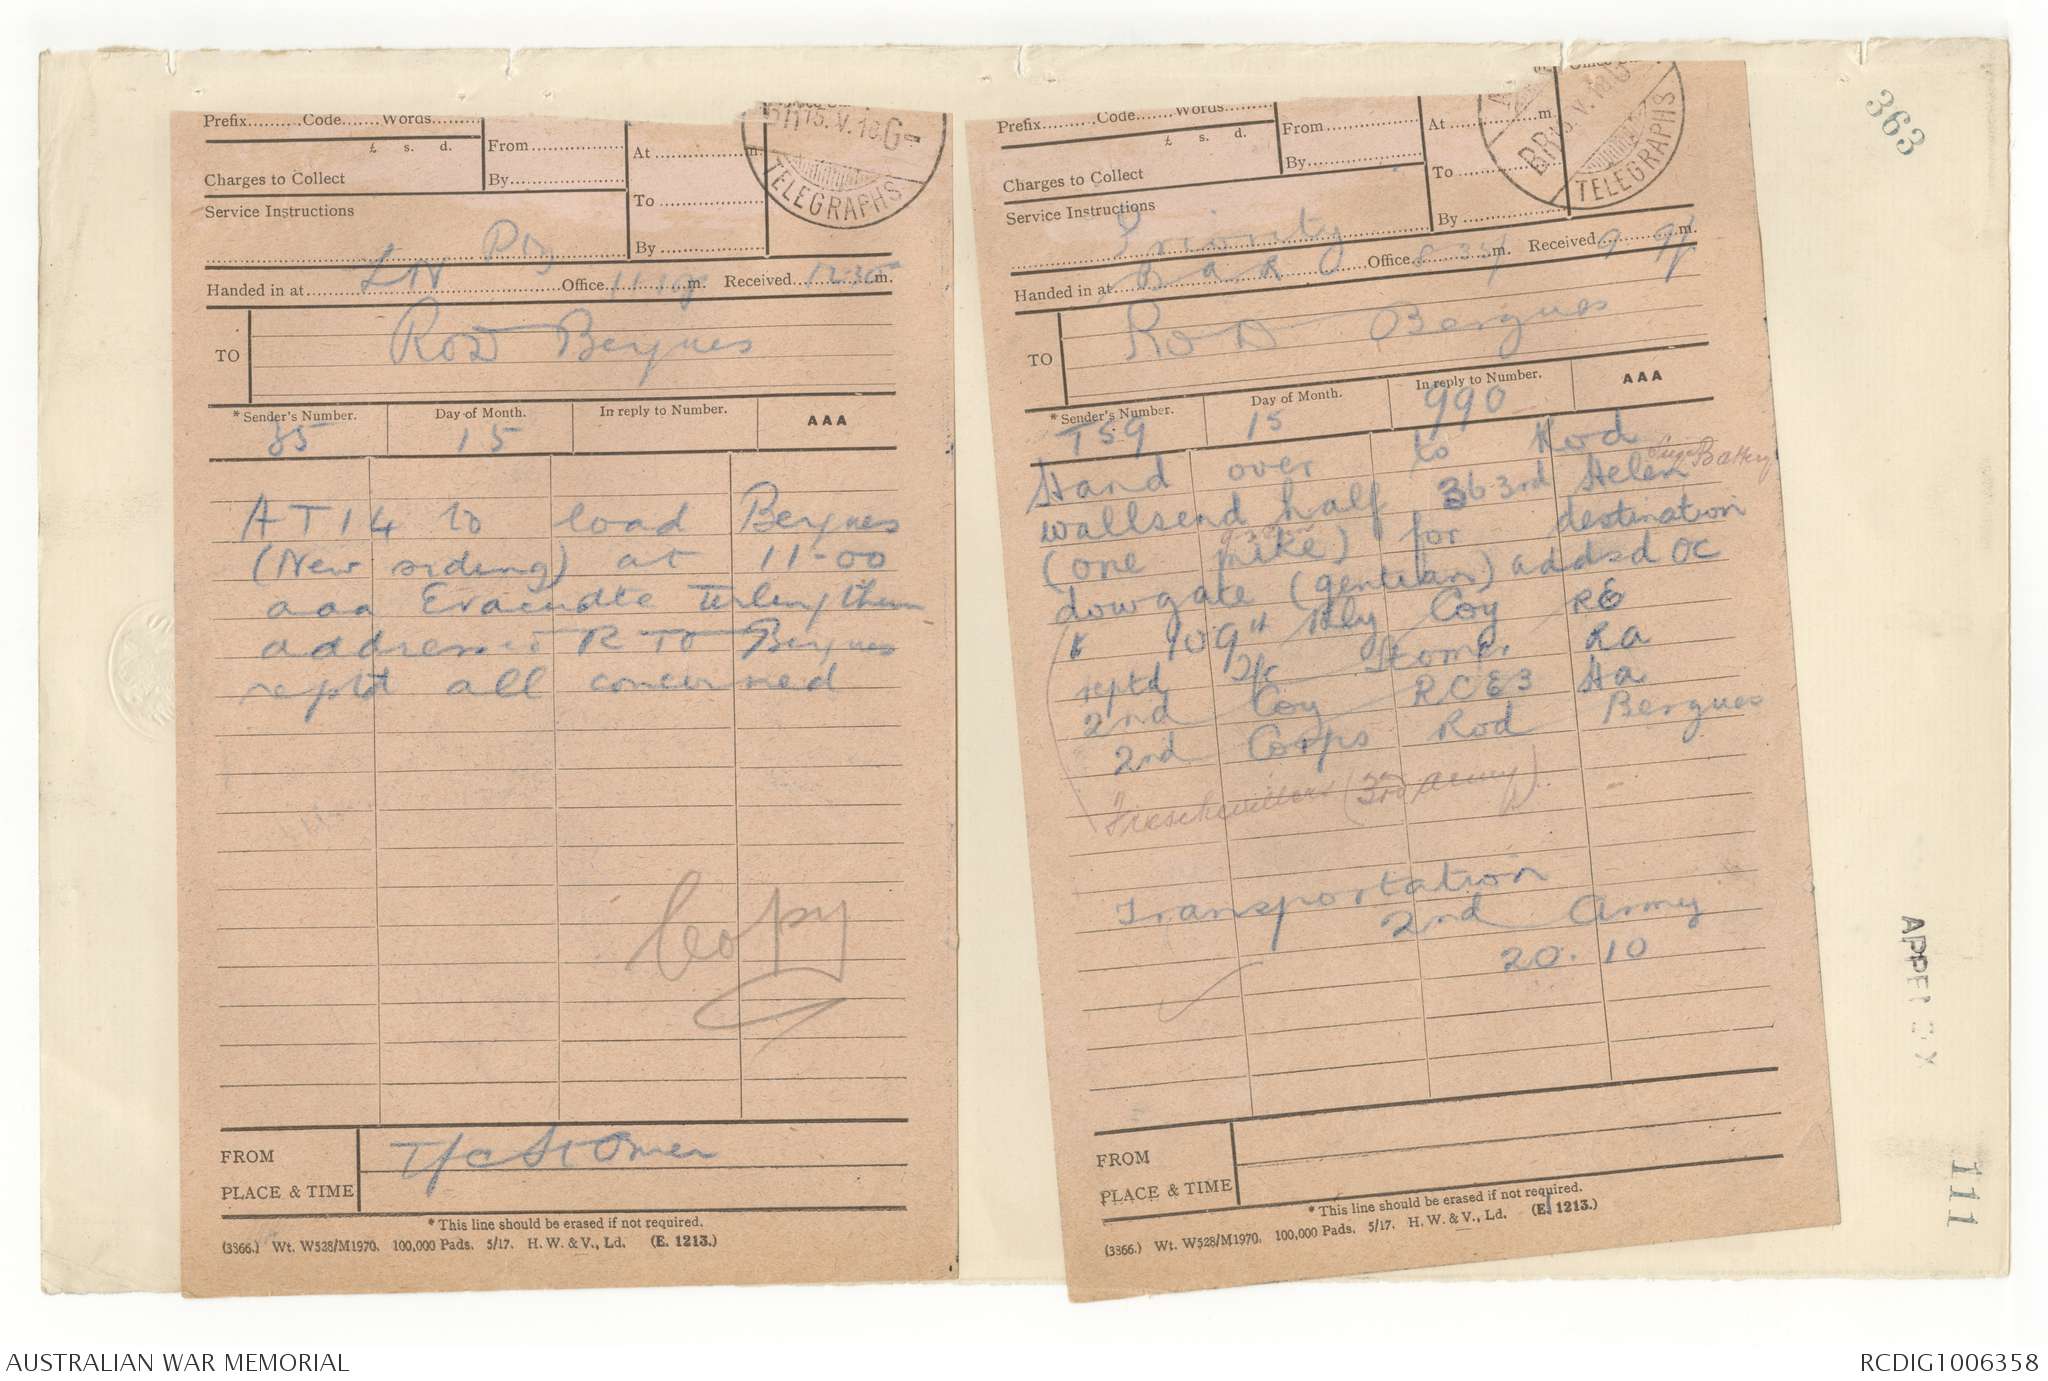 Prefix..........Code.......Words.......
£ s. d.
Charges to Collect
Service Instructions
From
By
At m.
To
By
15.V.18
TELEGRAPHS
Handed in at LN Office m. Received 12.30 m.
TO ROD Bergues
* Sender's Number. Day of Month. In reply to Number. AAA
35 15
AT14 to load Bergues
(New siding) at 11-00
aaa Evacuate
addressed RTO Bergues
reptd all concerned
Copy
FROM
PLACE & TIME
T/c St Omer
* This line should be erased if not required.
(3366.) Wt. W528/M1970. 100,000 Pads. 5/17. H. W. & V., Ld. (E. 1213.)
Prefix..........Code.......Words.......
£ s. d.
Charges to Collect
Service Instructions
Priority
From
By
At m.
To
By
V.18
TELEGRAPHS
Handed in at Office m. Received m.
TO ROD Bergues
* Sender's Number. Day of Month. In reply to Number. AAA
T59 15 990
Hand over to Rod
wallsend half 363rd Helen Siege Battery
(one mike) for destination
dowgate (gentian) addsd OC
109th Rly Coy RE
reptd T/c St Omer Ra
2nd Coy RCE3 Ha
2nd Corps Rod Bergues
(3rd Army)
Transportation
2nd Army
20.10
FROM
PLACE & TIME
* This line should be erased if not required.
(3366.) Wt. W528/M1970. 100,000 Pads. 5/17. H. W. & V., Ld. (E. 1213.)
363
111
AUSTRALIAN WAR MEMORIAL
RCDIG1006358